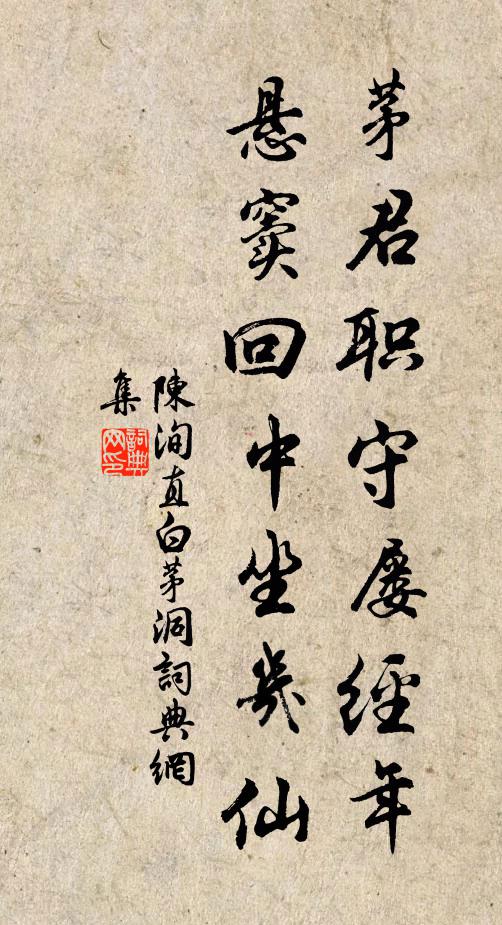 茅君职守屡經年
悬窦回中坐幾仙
陳洵直白茅洞詞典網
集
詞典
网印